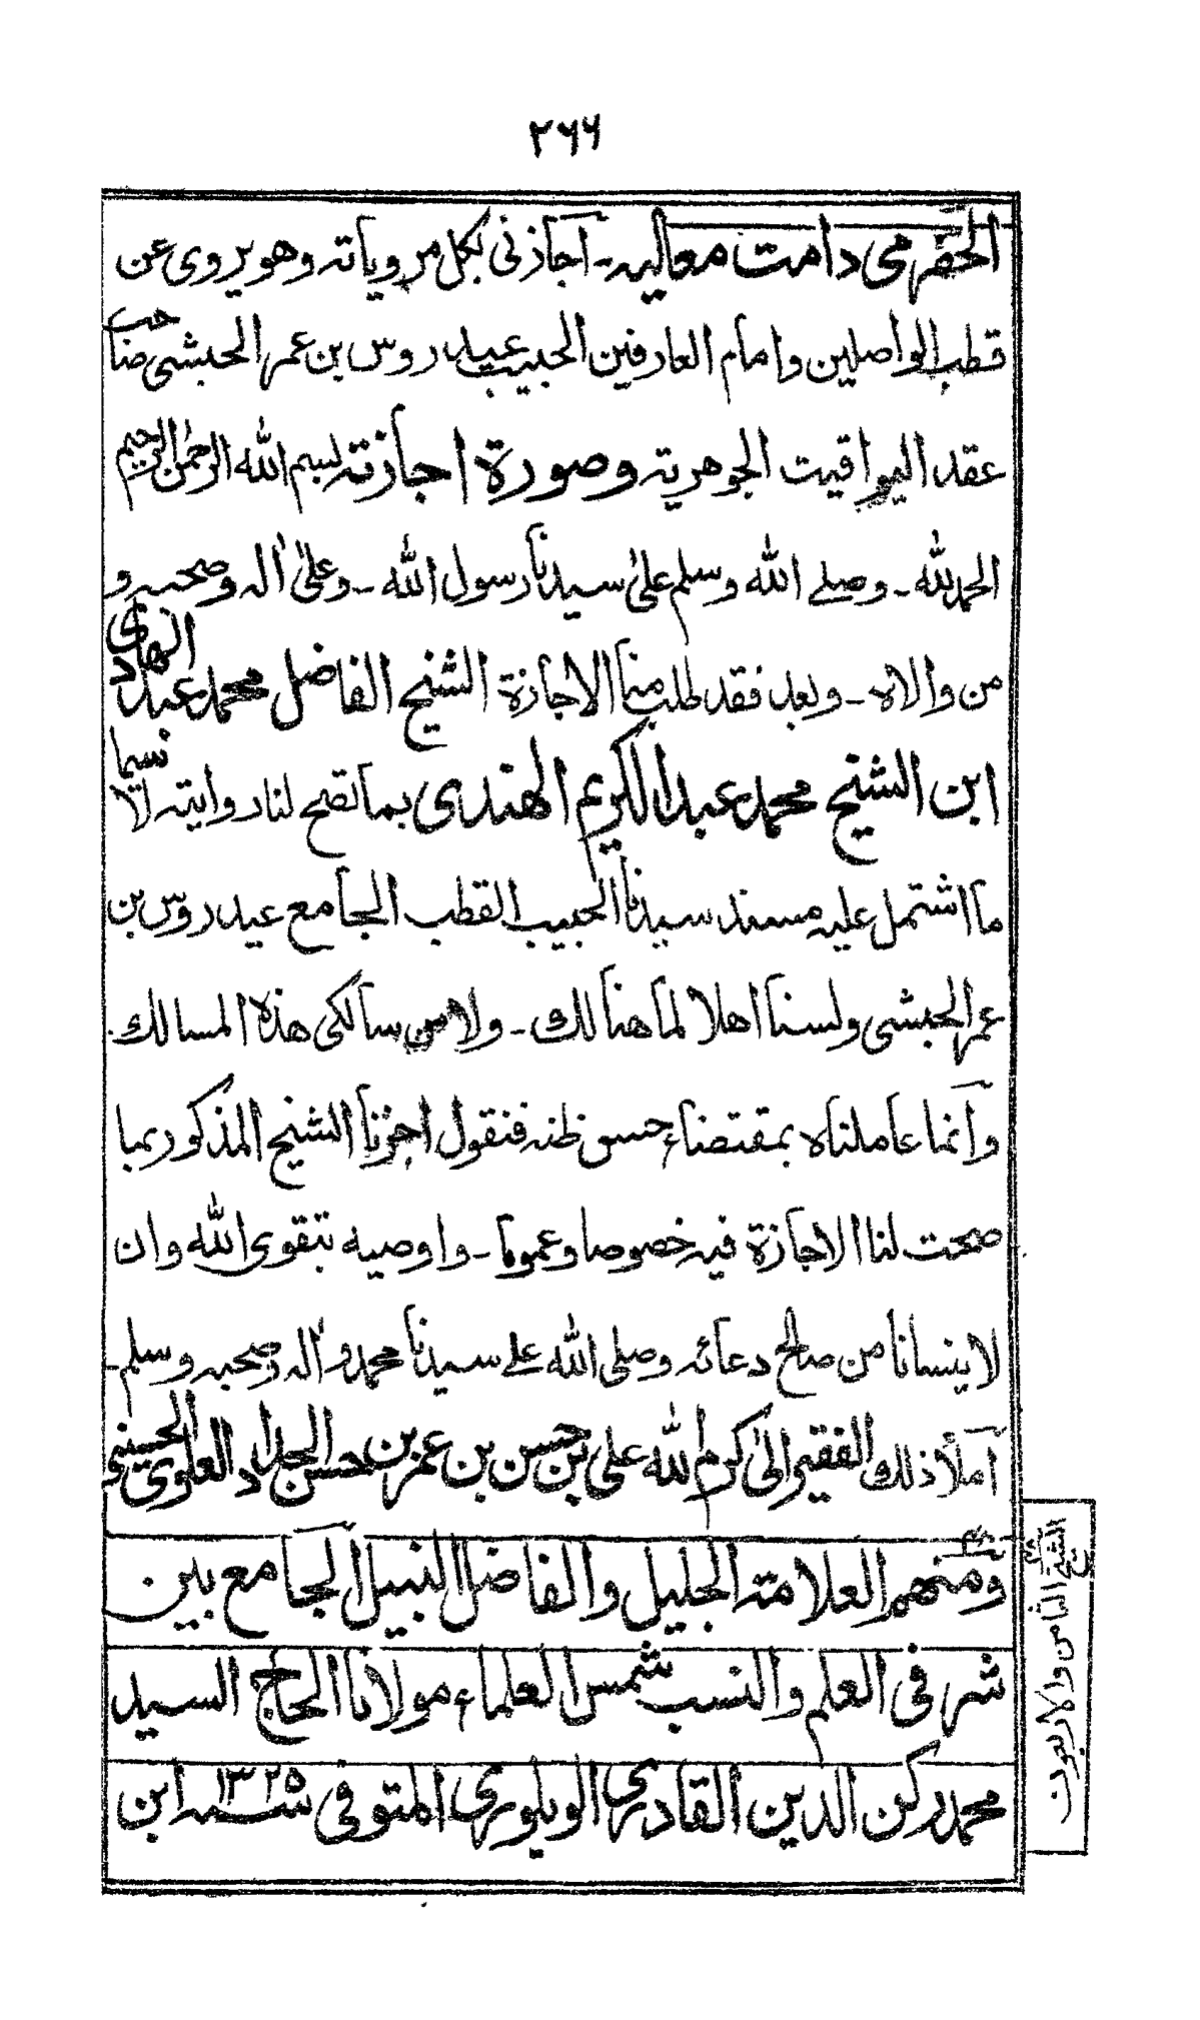 ٢٦٦
الحضرمي دامت معاليه - اجازني بكل مروياته وهو يروي عن
قطب الواصلين وامام العارفين الحبيب عيدروس بن عمر الحبشي صاحب
عقد اليواقيت الجوهرية وصورة اجازته بسم الله الرحمٰن الرحيم
الحمد لله - وصلے الله وسلم علىٰ سيدنا رسول الله - وعلىٰ اٰله وصحبه و
من والاه - وبعد فقد طلب منا الاجازة الشيخ الفاضل محمد عبد الهادي
ابن الشيخ محمد عبد الكريم الهندي بما تصح لنا روايته لا سيما
ما اشتمل عليه مسند سيدنا الحبيب القطب الجامع عيدروس بن
عمر الحبشي ولسنا اهلا لما هنالك - ولا من سالكي هذه المسالك
وانما عاملناه بمقتضاء حسن ظنه فنقول اجزنا الشيخ المذكور بما
صحت لنا الاجازة فيه خصوصا وعموما - واوصيه بتقوى الله وان
لا ينسانا من صالح دعائه وصلى الله علے سيدنا محمد واٰله وصحبه وسلم -
آملأ ذلك الفقير الىٰ كرم الله علي بن حسن بن عمر بن حسن الحداد العلوي الحسيني
ومنهم العلامة الجليل والفاضل النبيل الجامع بين
شرفي العلم والنسب شمس العلماء مولانا الحاج السيد
محمد ركن الدين القادري الويلوري المتوفى سنه ١٣٢٥ ابن
الشيخ الثامن والاربعون
٤٨